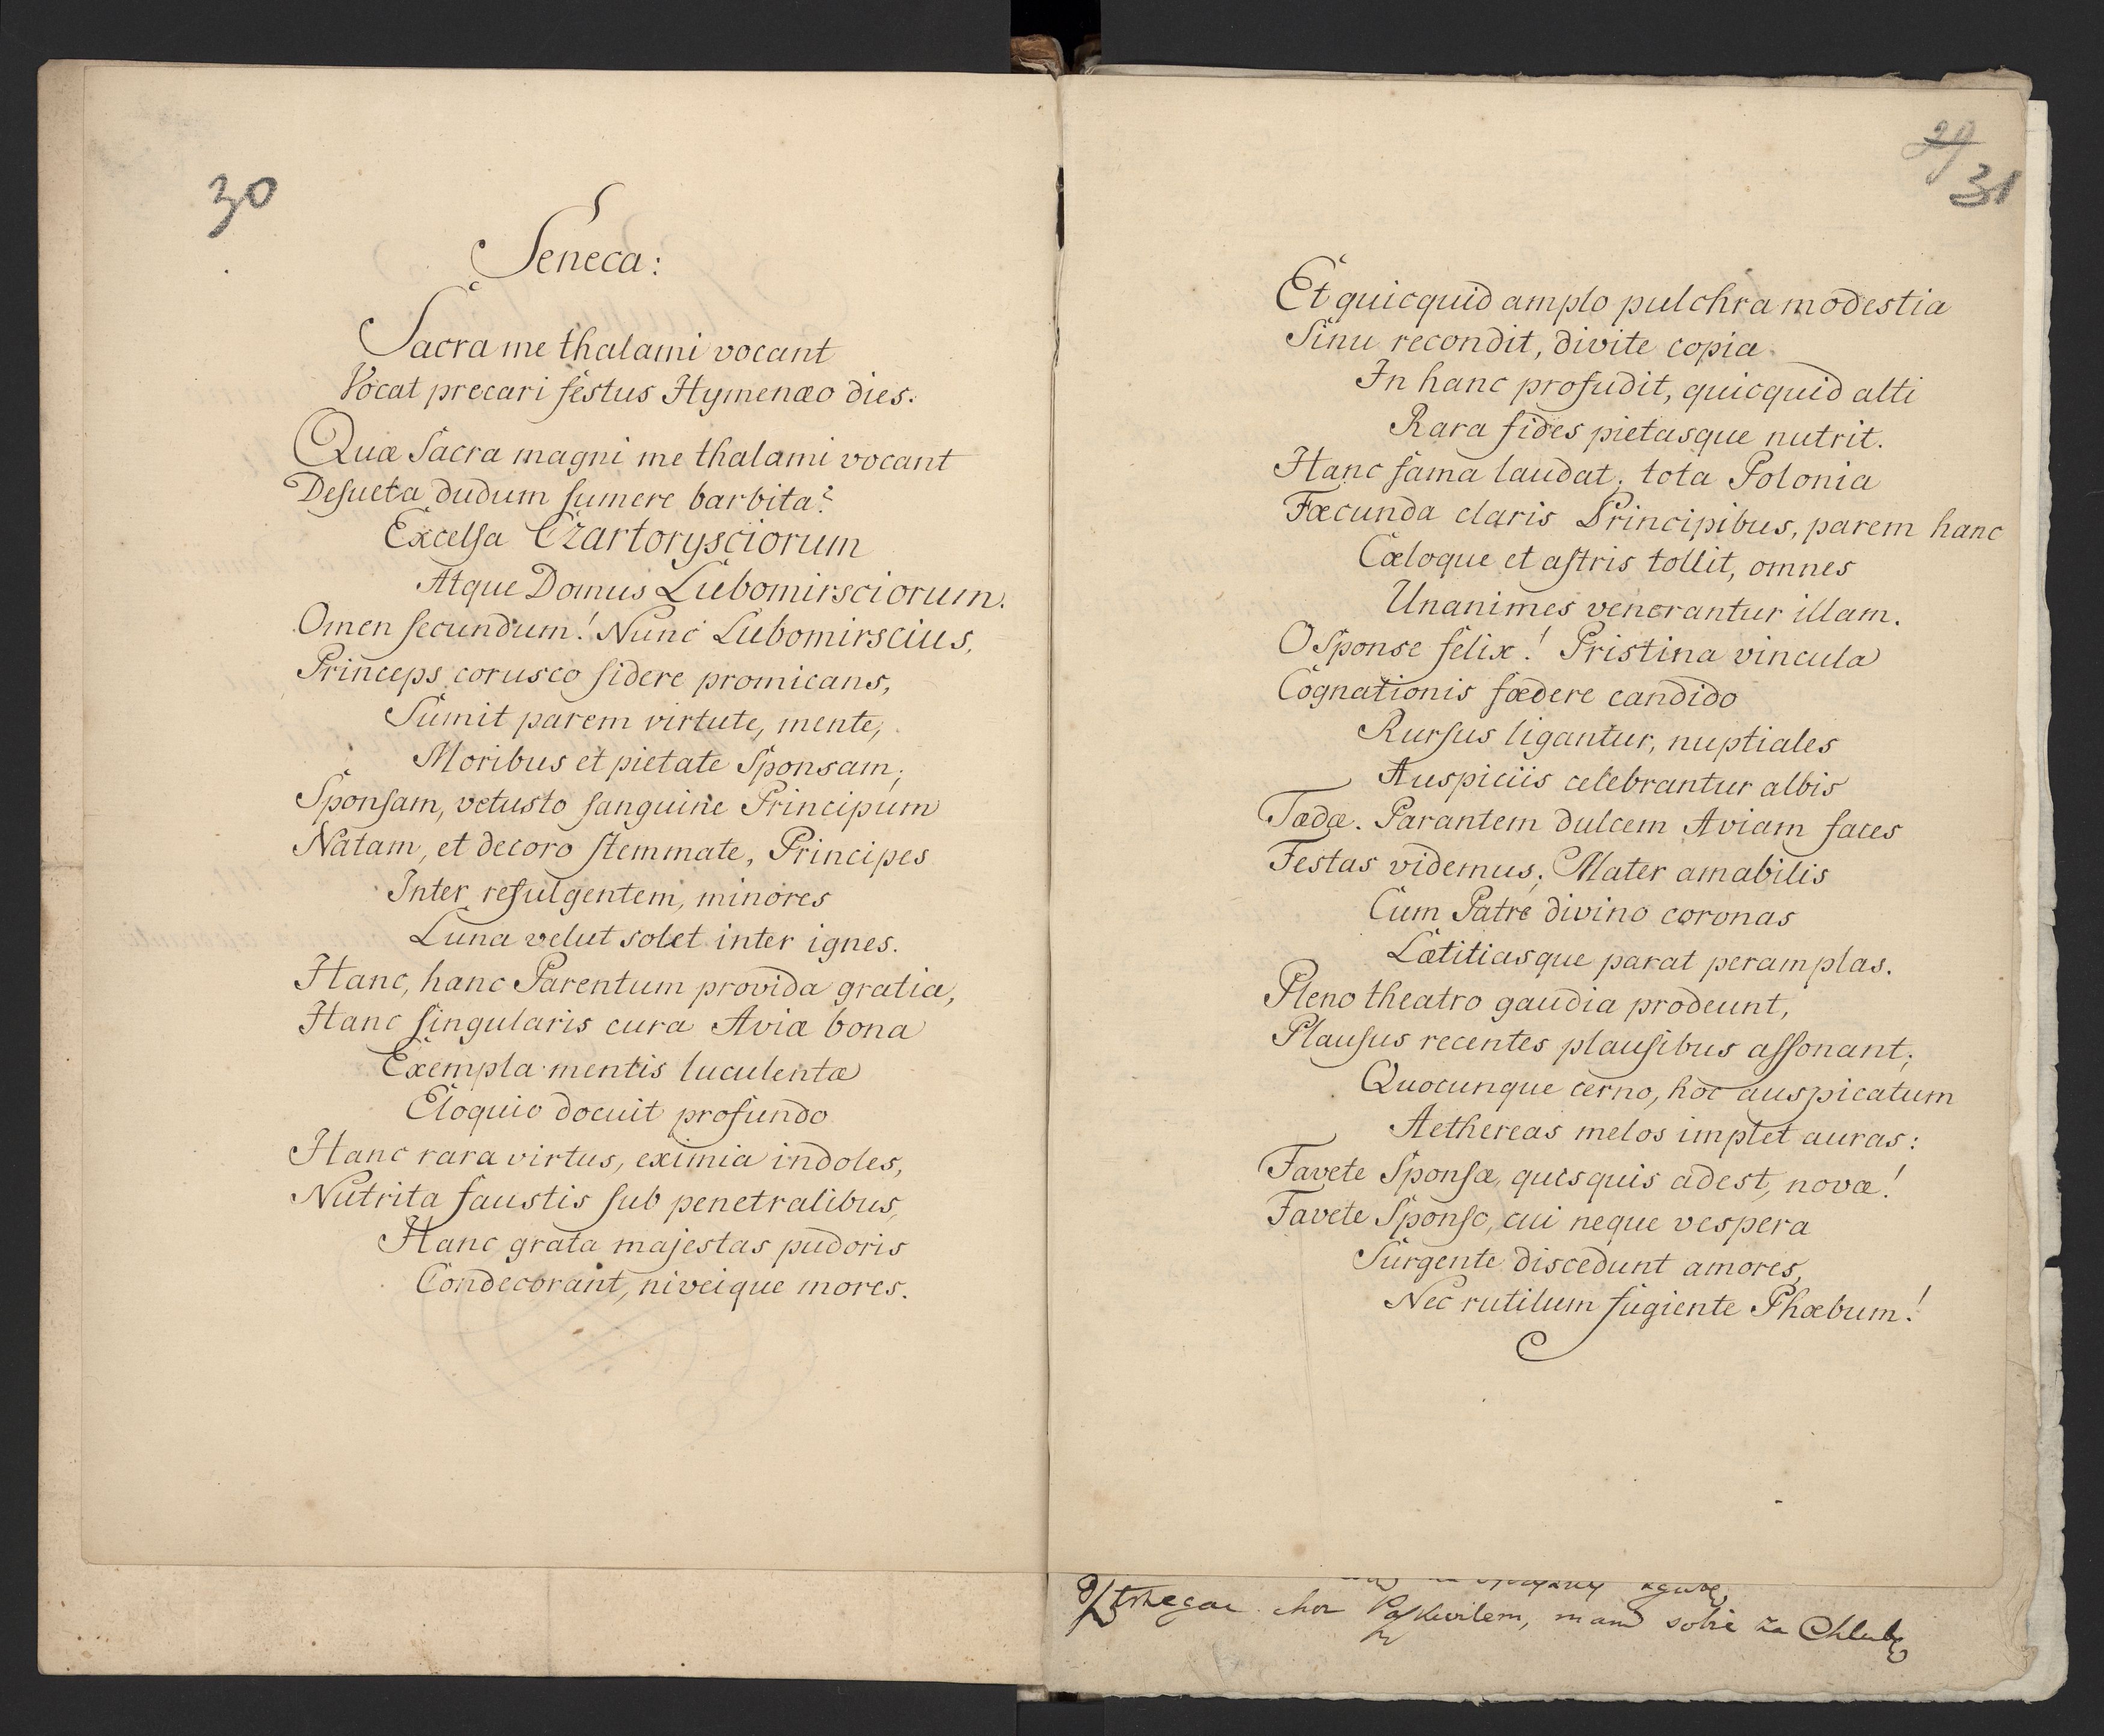 30
Seneca:
Sacra me thalami vocant
Vocat precari festus Hymenæo dies.
Quæ Sacra magni me thalami vocant
Desueta dudum sumere barbita?
Excelsa Czartorysciorum
Atque Domus Lubomirsciorum.
Omen secundum! Nunc Lubomirscius,
Princeps corusco sidere promicans,
Sumit parem virtute, mente,
Moribus et pietate Sponsam;
Sponsam, vetusto sanguine Principum
Natam, et decoro stemmate, Principes
Inter refulgentem, minores
Luna velut solet inter ignes.
Hanc, hanc Parentum provida gratia,
Hanc singularis cura Aviæ bona
Exempla mentis luculentæ
Eloquio docuit profundo
Hanc rara virtus, eximia indoles,
Nutrita faustis sub penetralibus,
Hanc grata majestas pudoris
Condecorant, niveique mores.
29
31
Et quicquid amplo pulchra modestia
Sinu recondit, divite copia
In hanc profudit, quicquid alti
Rara fides pietasque nutrit.
Hanc fama laudat; tota Polonia
Fæcunda claris Principibus, parem hanc
Cæloque et astris tollit, omnes
Unanimes venerantur illam.
O Sponse felix! Pristina vincula
Cognationis fædere candido
Rursus ligantur, nuptiales
Auspiciis celebrantur albis
Tædæ. Parantem dulcem Aviam faces
Festas videmus; Mater amabilis
Cum Patre divino coronas
Lætitiasque parat peramplas.
Pleno theatro gaudia prodeunt,
Plausus recentes plausibus assonant;
Quocunque cerno, hoc auspicatum
Aethereas melos implet auras:
Favete Sponsæ, quisquis adest, novæ!
Favete Sponso, cui neque vespera
Surgente discedunt amores,
Nec rutilum fugiente Phæbum!
mam sobie za Chlubę